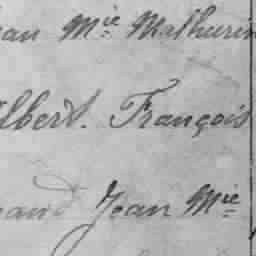 ean Mie Mathurin
lbert. François
and Jean Mie